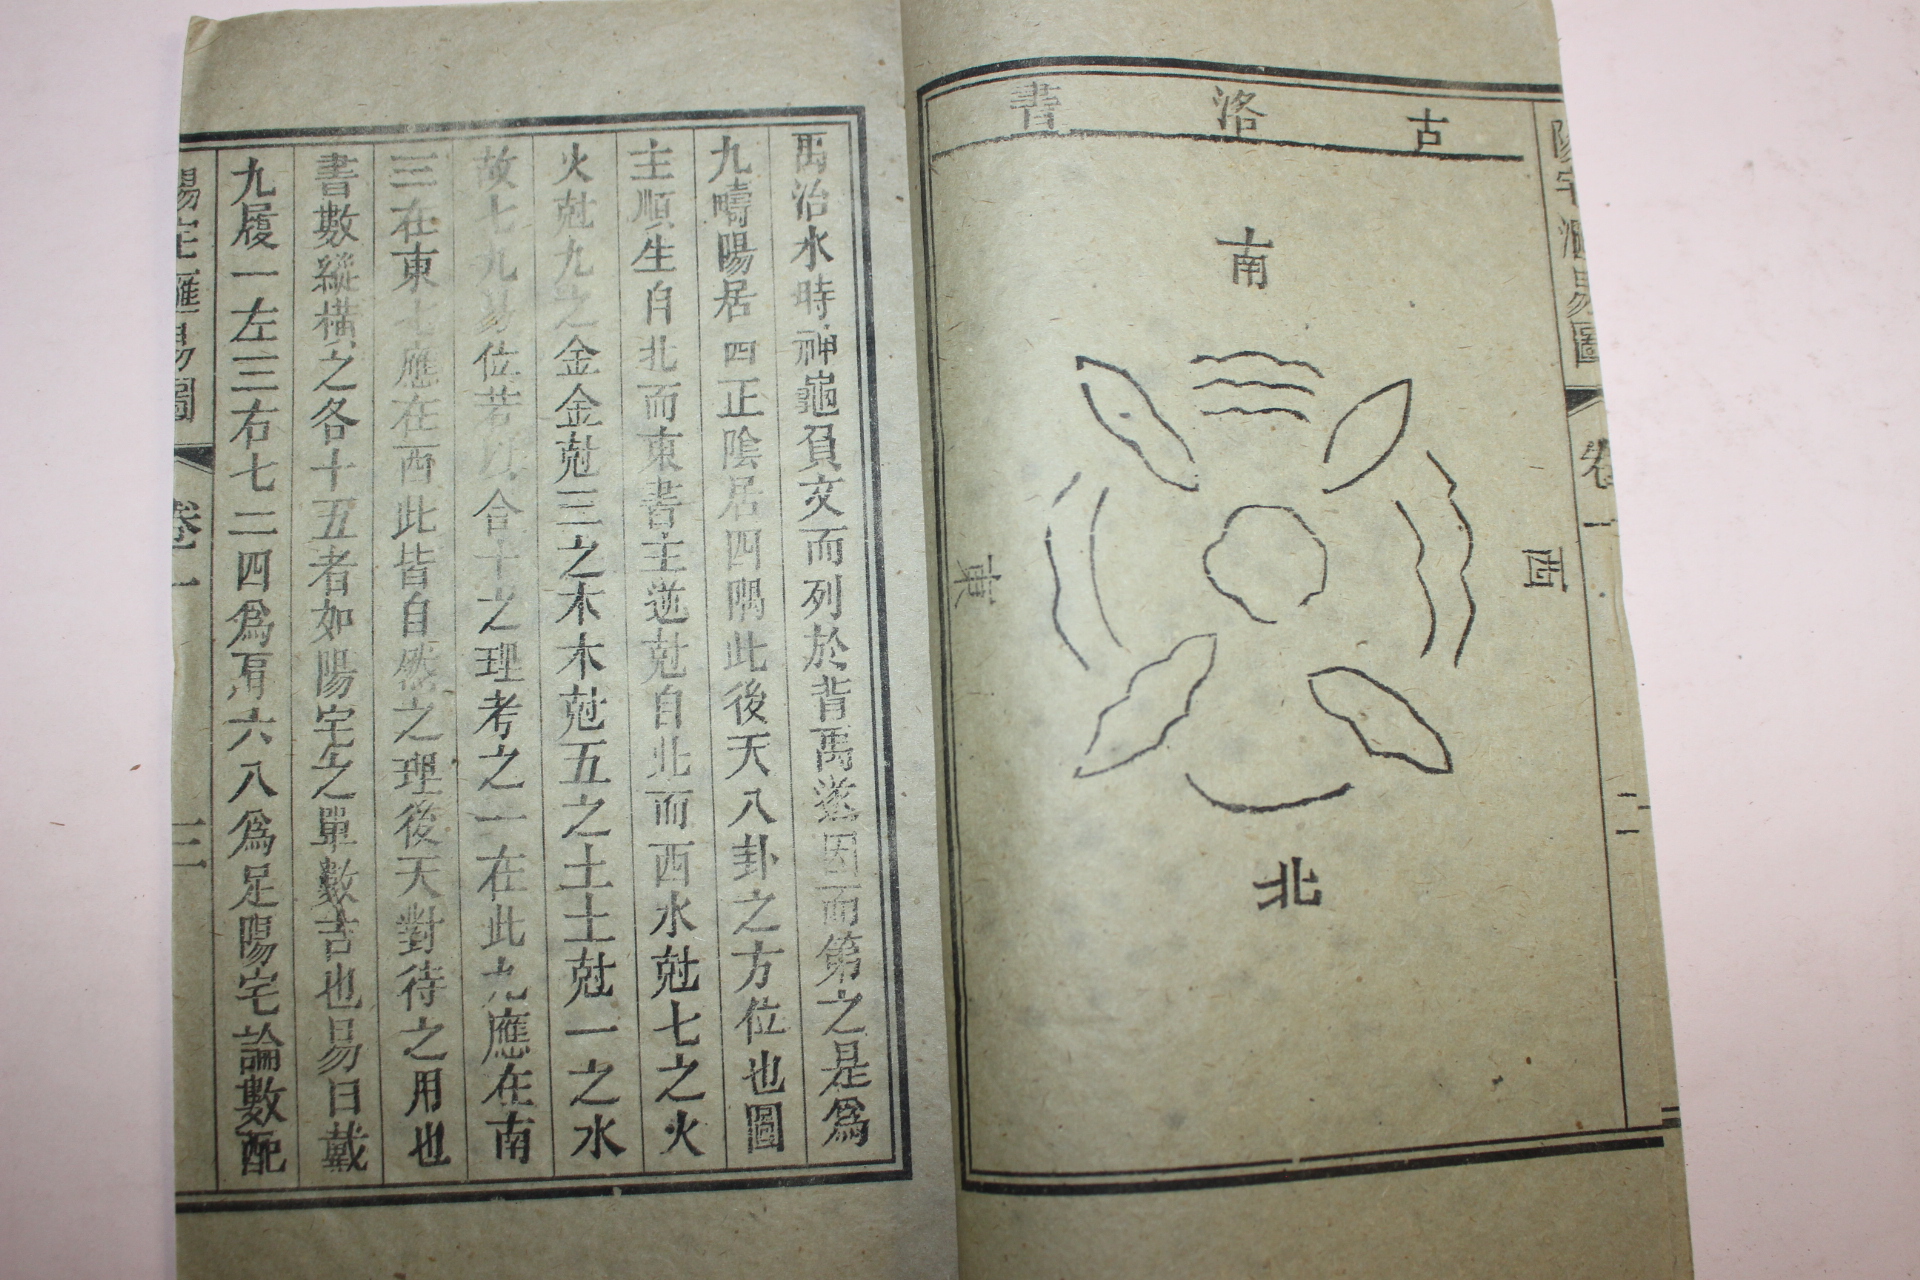 古洛書
南
東
西
北
卷一
二
禹治水時神龜負文而列於背禹遂因而第之是為
九疇陽居四正陰居四隅此後天八卦之方位也圖
主順生自北而東書主逆尅自北而西水尅七之火
火尅九之金金尅三之木木尅五之土土尅一之水
故七九易位若以合十之理考之一在此九應在南
三在東七應在西此皆自然之理後天對待之用也
書數縱橫之各十五者如陽宅之單數吉也易曰戴
九履一左三右七二四為肩六八為足陽宅論數配
卷一
三